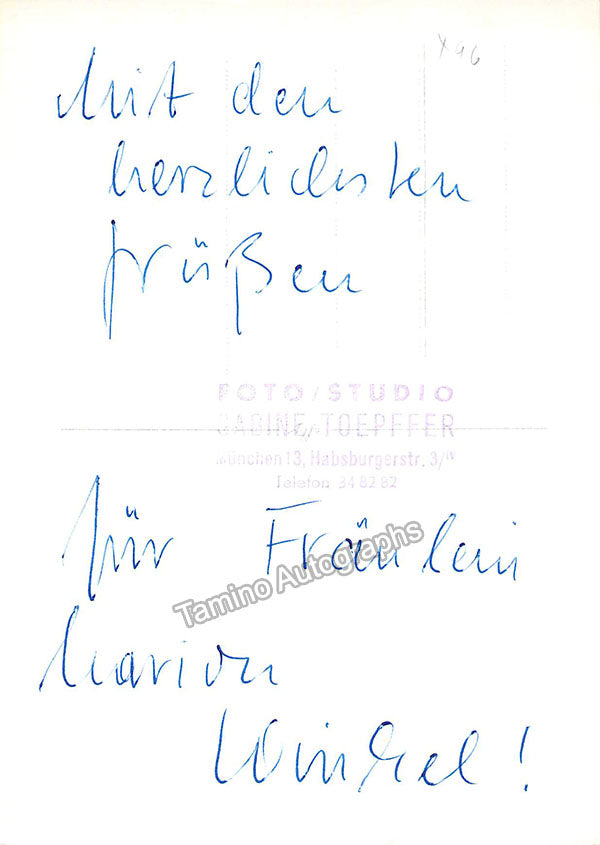 X46
Mit den
herzlichsten
Grüßen
FOTO / STUDIO
SABINE TOEPFFER
München 13, Habsburgerstr. 3/IV
Telefon 34 82 82
für Fräulein
Tamino Autographs
Marion
Winkel!